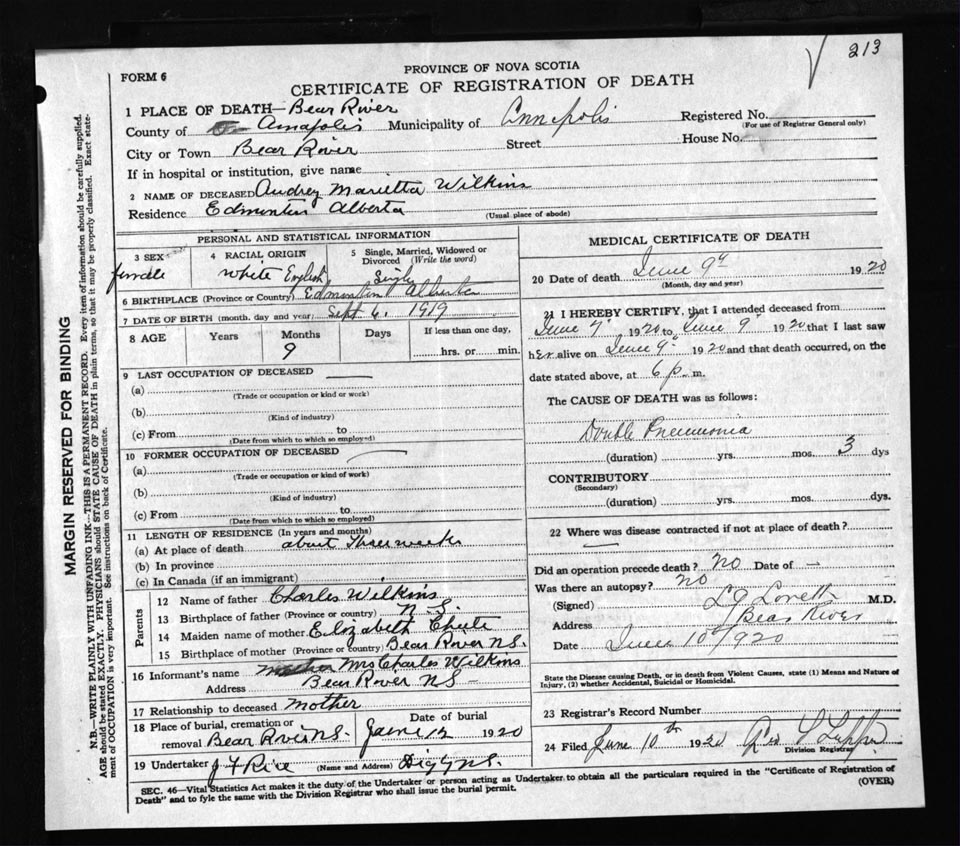 213
FORM 6
PROVINCE OF NOVA SCOTIA
CERTIFICATE OF REGISTRATION OF DEATH
1 PLACE OF DEATH— Bear River
County of Annapolis Municipality of Annapolis Registered No.
(For use of Registrar General only)
City or Town Bear River Street House No.
If in hospital or institution, give name
2 NAME OF DECEASED Audrey Marietta Wilkins
Residence Edmonton Alberta
(Usual place of abode)
PERSONAL AND STATISTICAL INFORMATION
3 SEX 4 RACIAL ORIGIN 5 Single, Married, Widowed or Divorced (Write the word)
female White English Single
6 BIRTHPLACE (Province or Country) Edmonton Alberta
7 DATE OF BIRTH (month, day and year) Sept 6. 1919
8 AGE Years Months Days If less than one day,
9 hrs. or min.
9 LAST OCCUPATION OF DECEASED
(a)
(Trade or occupation or kind or work)
(b)
(Kind of industry)
(c) From to
(Date from which to which so employed)
10 FORMER OCCUPATION OF DECEASED
(a)
(Trade or occupation or kind of work)
(b)
(Kind of industry)
(c) From to
(Date from which to which so employed)
11 LENGTH OF RESIDENCE (In years and months)
(a) At place of death about three weeks
(b) In province
(c) In Canada (if an immigrant)
Parents
12 Name of father Charles Wilkins
13 Birthplace of father (Province or country) N S.
14 Maiden name of mother Elizabeth Chute
15 Birthplace of mother (Province or country) Bear River N.S.
16 Informant's name Mrs Charles Wilkins
Address Bear River N S
17 Relationship to deceased Mother
18 Place of burial, cremation or removal Bear River N S. Date of burial June 12 1920
19 Undertaker J F Rice (Name and Address) Digby N S.
MEDICAL CERTIFICATE OF DEATH
20 Date of death June 9th 1920
(Month, day and year)
21 I HEREBY CERTIFY, that I attended deceased from
June 7" 1920 to June 9" 1920 that I last saw
her alive on June 9" 1920 and that death occurred, on the
date stated above, at 6 p. m.
The CAUSE OF DEATH was as follows:
Double Pneumonia
(duration) yrs. mos. 3 dys
CONTRIBUTORY
(Secondary)
(duration) yrs. mos. dys.
22 Where was disease contracted if not at place of death?
Did an operation precede death? NO Date of —
Was there an autopsy? NO
(Signed) L J Lovett M.D.
Address Bear River
Date June 10" 1920
State the Disease causing Death, or in death from Violent Causes, state (1) Means and Nature of
Injury, (2) whether Accidental, Suicidal or Homicidal.
23 Registrar's Record Number
24 Filed June 10th 1920
Division Registrar
SEC. 46—Vital Statistics Act makes it the duty of the Undertaker or person acting as Undertaker to obtain all the particulars required in the "Certificate of Registration of
Death" and to fyle the same with the Division Registrar who shall issue the burial permit.
(OVER)
MARGIN RESERVED FOR BINDING
N.B.—WRITE PLAINLY WITH UNFADING INK—THIS IS A PERMANENT RECORD. Every item of information should be carefully supplied.
AGE should be stated EXACTLY. PHYSICIANS should STATE CAUSE OF DEATH in plain terms, so that it may be properly classified. Exact statement of OCCUPATION is very important. See instructions on back of Certificate.